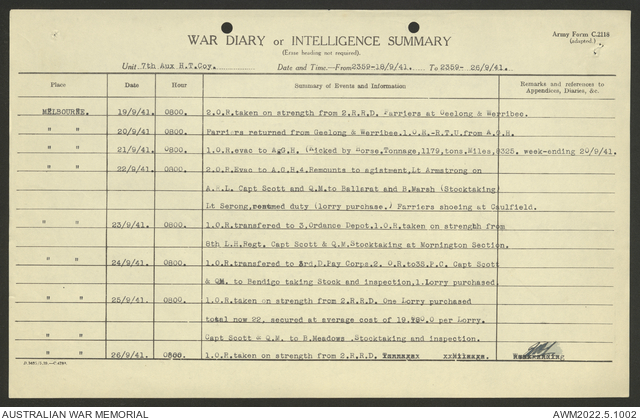 Army Form C.2118
WAR DIARY or INTELLIGENCE SUMMARY
(adapted.)
(Erase heading not required).
Unit. 7th Aux H.T.Coy. Date and Time.—From 2359-18/9/41. To 2359- 26/9/41.
Place Date Hour Summary of Events and Information Remarks and references to Appendices, Diaries, &c.
MELBOURNE. 19/9/41. 0800. 2.O.R.taken on strength from 2.H.R.D. Farriers at Geelong & Werribee.
" " 20/9/41. 0800. Farriers returned from Geelong & Werribee.1.O.R.-R.T.U.from A.G.H.
" " 21/9/41 0800. 1.O.R.evac to A.G.H. (kicked by Horse,Tonnage,1179,tons,Miles,8325. week-ending 20/9/41.
" " 22/9/41. 0800. 2.O.R.Evac to A.G.H.4.Remounts to agistment,Lt Armstrong on
A.W.L. Capt Scott and Q.M.to Ballarat and B.Marsh (Stocktaking)
Lt Serong,resumed duty (lorry purchase.) Farriers shoeing at Caulfield.
" " 23/9/41. 0800. 1.O.R.transfered to 3.Ordance Depot.1.O.R.taken on strength from
8th L.H.Regt. Capt Scott & Q.M.Stocktaking at Mornington Section.
" " 24/9/41. 0800. 1.O.R.transfered to 3rd.D.Pay Corps.2. O.R.to35.P.C. Capt Scott
& QM. to Bendigo taking Stock and inspection,1.Lorry purchased.
" " 25/9/41. 0800. 1.O.R.taken on strength from 2.H.R.D. One Lorry purchased
total now 22, secured at average cost of per Lorry.
" " Capt Scott & Q.M. to B.Meadows .Stocktaking and inspection.
" " 26/9/41. 0800. 1.O.R.taken on strength from 2.H.R.D.
AUSTRALIAN WAR MEMORIAL AWM2022.5.1002